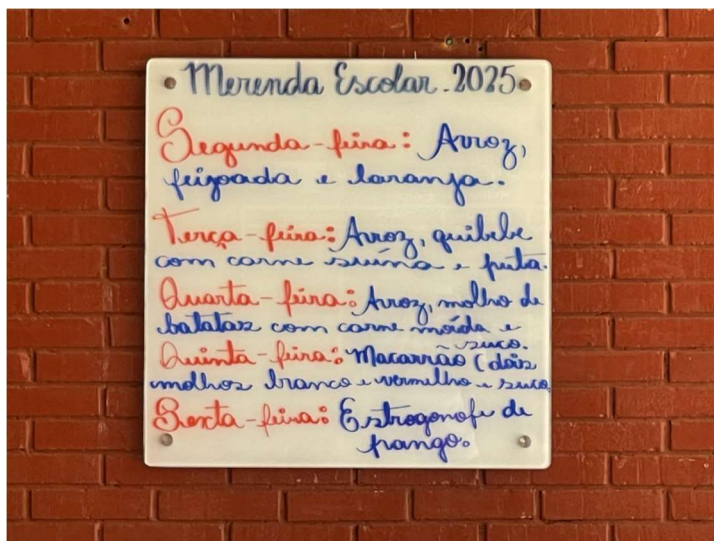 Merenda Escolar. 2025
Segunda-feira: Arroz,
feijoada e laranja.
Terça-feira: Arroz, quibebe
com carne suína e fruta.
Quarta-feira: Arroz, molho de
batatas com carne moída e
suco.
Quinta-feira: Macarrão (dois
molhos branco e vermelho e suco
Sexta-feira: Estrogonofe de
frango.